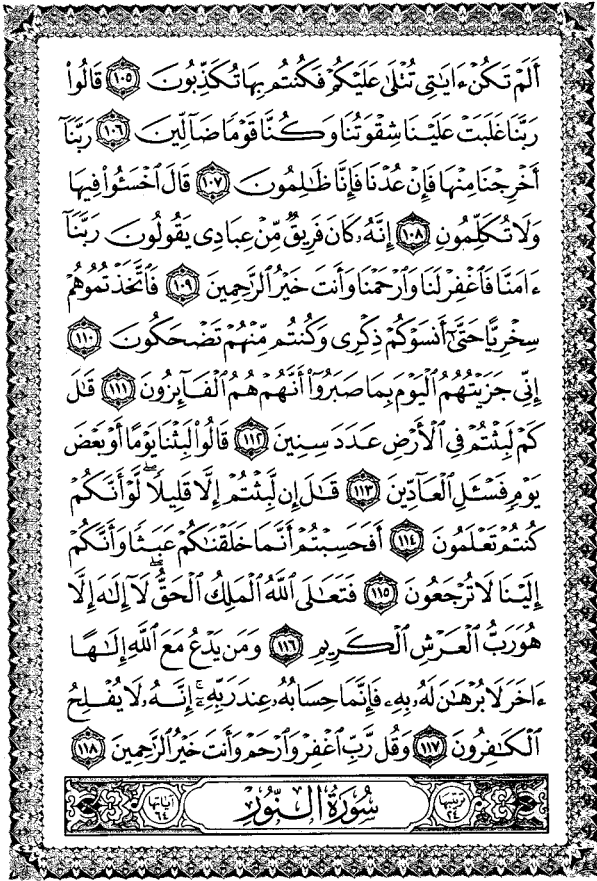 أَلَمْ تَكُنْ ءَايَٰتِى تُتْلَىٰ عَلَيْكُمْ فَكُنتُم بِهَا تُكَذِّبُونَ ١٠٥ قَالُوا۟
رَبَّنَا غَلَبَتْ عَلَيْنَا شِقْوَتُنَا وَكُنَّا قَوْمًا ضَآلِّينَ ١٠٦ رَبَّنَآ
أَخْرِجْنَا مِنْهَا فَإِنْ عُدْنَا فَإِنَّا ظَٰلِمُونَ ١٠٧ قَالَ ٱخْسَـُٔوا۟ فِيهَا
وَلَا تُكَلِّمُونِ ١٠٨ إِنَّهُۥ كَانَ فَرِيقٌ مِّنْ عِبَادِى يَقُولُونَ رَبَّنَآ
ءَامَنَّا فَٱغْفِرْ لَنَا وَٱرْحَمْنَا وَأَنتَ خَيْرُ ٱلرَّٰحِمِينَ ١٠٩ فَٱتَّخَذْتُمُوهُمْ
سِخْرِيًّا حَتَّىٰٓ أَنسَوْكُمْ ذِكْرِى وَكُنتُم مِّنْهُمْ تَضْحَكُونَ ١١٠
إِنِّى جَزَيْتُهُمُ ٱلْيَوْمَ بِمَا صَبَرُوٓا۟ أَنَّهُمْ هُمُ ٱلْفَآئِزُونَ ١١١ قَٰلَ
كَمْ لَبِثْتُمْ فِى ٱلْأَرْضِ عَدَدَ سِنِينَ ١١٢ قَالُوا۟ لَبِثْنَا يَوْمًا أَوْ بَعْضَ
يَوْمٍ فَسْـَٔلِ ٱلْعَآدِّينَ ١١٣ قَٰلَ إِن لَّبِثْتُمْ إِلَّا قَلِيلًا ۖ لَّوْ أَنَّكُمْ
كُنتُمْ تَعْلَمُونَ ١١٤ أَفَحَسِبْتُمْ أَنَّمَا خَلَقْنَٰكُمْ عَبَثًا وَأَنَّكُمْ
إِلَيْنَا لَا تُرْجَعُونَ ١١٥ فَتَعَٰلَى ٱللَّهُ ٱلْمَلِكُ ٱلْحَقُّ ۖ لَآ إِلَٰهَ إِلَّا
هُوَ رَبُّ ٱلْعَرْشِ ٱلْكَرِيمِ ١١٦ وَمَن يَدْعُ مَعَ ٱللَّهِ إِلَٰهًا
ءَاخَرَ لَا بُرْهَٰنَ لَهُۥ بِهِۦ فَإِنَّمَا حِسَابُهُۥ عِندَ رَبِّهِۦٓ ۚ إِنَّهُۥ لَا يُفْلِحُ
ٱلْكَٰفِرُونَ ١١٧ وَقُل رَّبِّ ٱغْفِرْ وَٱرْحَمْ وَأَنتَ خَيْرُ ٱلرَّٰحِمِينَ ١١٨
ترتيبها ٢٤ سُورَةُ ٱلنُّورِ آياتها ٦٤